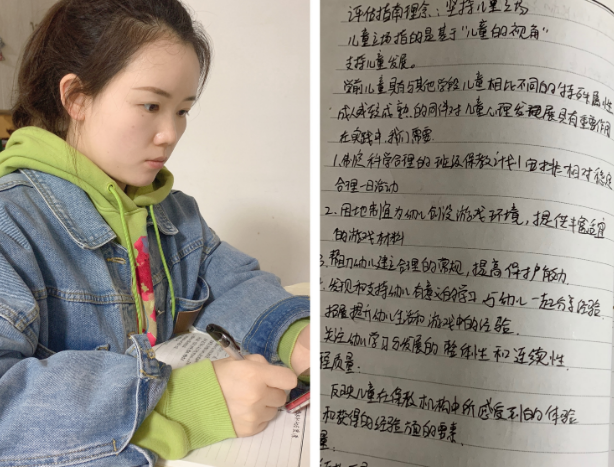 评估指南理念：坚持儿童立场
儿童立场指的是基于"儿童的视角"
支持儿童发展。
学前儿童具有与其他学段儿童相比不同的特殊属性
成人或较成熟的同伴对儿童心理发展具有重要作用
在实践中,我们需要
1.制定科学合理的班级保教计划 安排相对稳定
合理一日活动
2.因地制宜为幼儿创设游戏环境，提供丰富适宜
的游戏材料
3.帮助幼儿建立合理的常规，提高保护能力
发现和支持幼儿有意义的学习 与幼儿一起分享经验
拓展提升幼儿生活和游戏中的经验.
关注幼儿学习与发展的整体性和连续性.
程质量.
反映儿童在保教机构中所感受到的体验
和获得的经验 的要素.